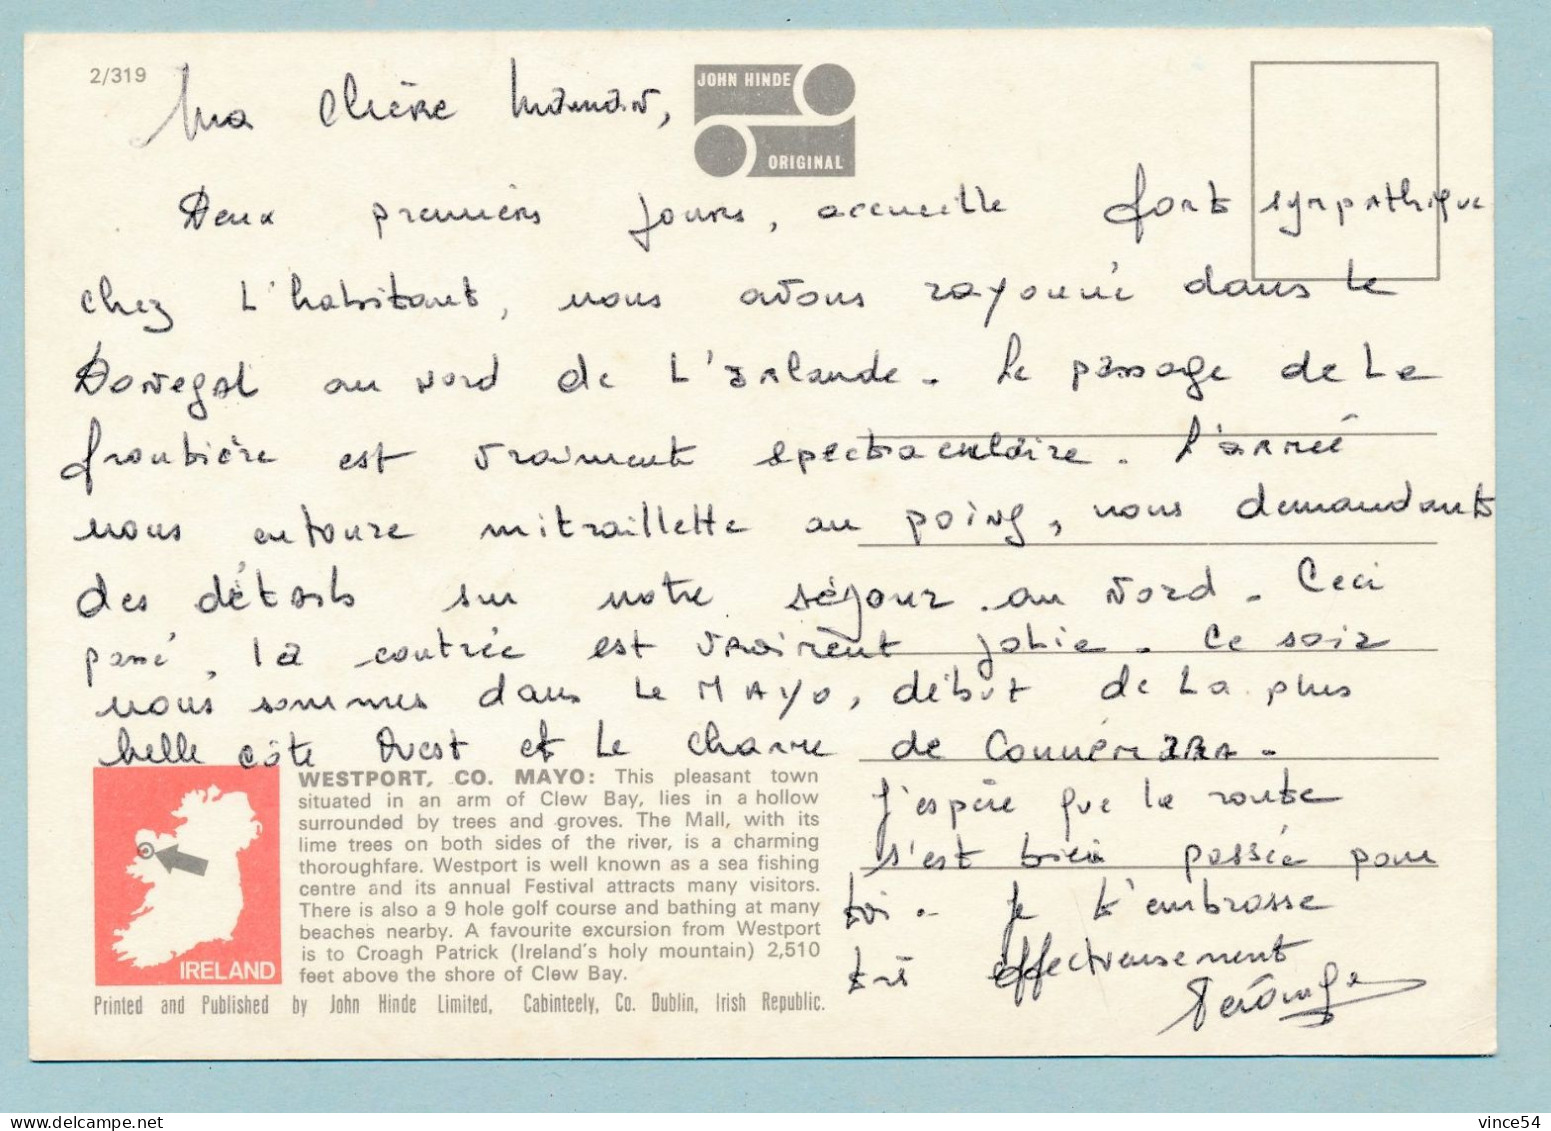 2/319
JOHN HINDE
ORIGINAL
Ma Chère Maman,
Deux premiers jours, accueille fort sympathique
chez l'habitant, nous avons rayonné dans le
Donegal au nord de L'Irlande. Le passage de la
frontière est vraiment spectaculaire. L'armée
nous entoure mitraillette au poing, nous demandant
des détails sur notre séjour au Nord. Ceci
passé, la contrée est vraiment jolie. Ce soir
nous sommes dans le MAYO, début de la plus
belle côte Ouest et le charme de Connémara.
J'espère que la route
s'est bien passée pour
toi. Je t'embrasse
très affectueusement
WESTPORT, CO. MAYO: This pleasant town
situated in an arm of Clew Bay, lies in a hollow
surrounded by trees and groves. The Mall, with its
lime trees on both sides of the river, is a charming
thoroughfare. Westport is well known as a sea fishing
centre and its annual Festival attracts many visitors.
There is also a 9 hole golf course and bathing at many
beaches nearby. A favourite excursion from Westport
is to Croagh Patrick (Ireland's holy mountain) 2,510
feet above the shore of Clew Bay.
IRELAND
Printed and Published by John Hinde Limited, Cabinteely, Co. Dublin, Irish Republic.
delcampe.net
vince54